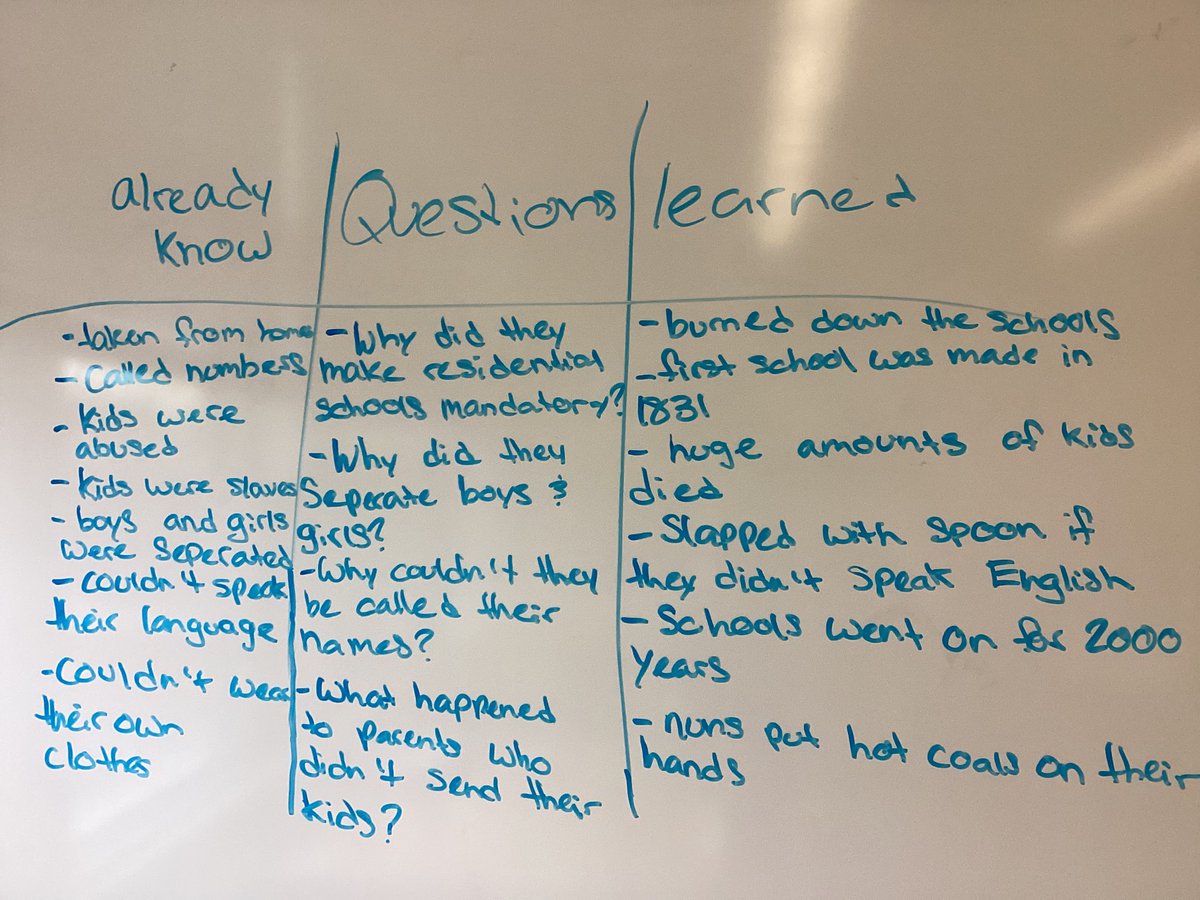 already
know
- taken from home
- Called numbers
- Kids were
abused
- Kids were slaves
- boys and girls
were seperated
- couldn't speak
their language
- Couldn't wear
their own
clothes
Questions
- Why did they
make residential
schools mandatory?
- Why did they
Seperate boys &
girls?
- Why couldn't they
be called their
names?
- What happened
to parents who
didn't send their
kids?
learned
- burned down the schools
- first school was made in
1831
- huge amounts of kids
died
- Slapped with spoon if
they didn't speak English
- Schools went on for 2000
years
- nuns put hot coals on their
hands